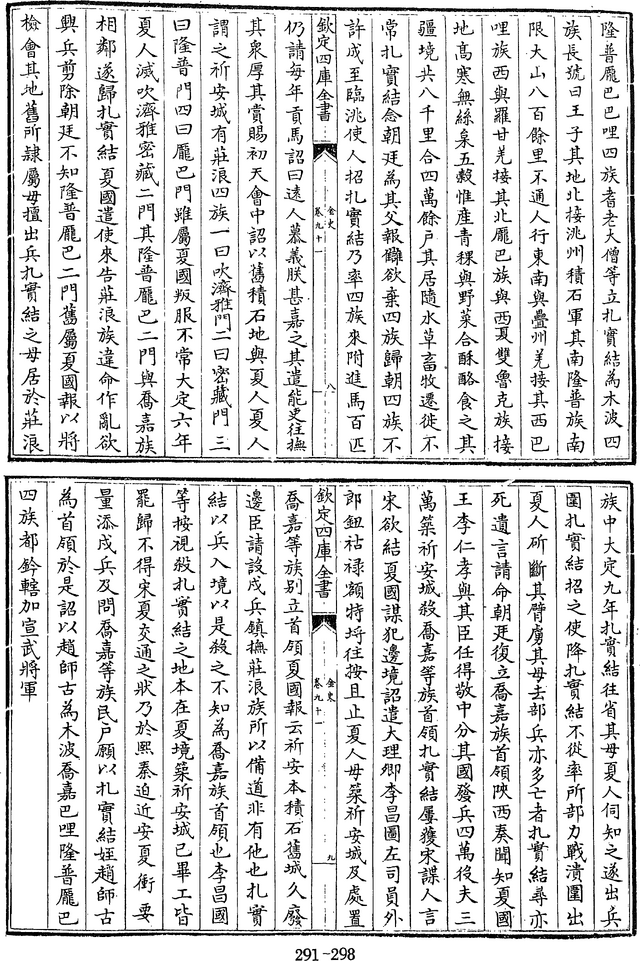 隆普龎巴巴哩四族耆老大僧等立扎實結為木波四
族長號曰王子其地北接洮州積石軍其南隆普族南
限大山八百餘里不通人行東南與疊州羌接其西巴
哩族西與羅甘羌接其北龎巴族與西夏雙魯克族接
地高寒無絲枲五穀惟産青稞與野菜合酥酪食之其
疆境共八千里合四萬餘戸其居隨水草畜牧遷徙不
常扎實結念朝廷為其父報讎欲棄四族歸朝四族不
許成至臨洮使人招扎實結乃率四族來附進馬百匹
欽定四庫全書
金史
卷九十一
八
仍請每年貢馬詔曰逺人慕義朕甚嘉之其遣能吏往撫
其衆厚其賞賜初天會中詔以舊積石地與夏人夏人
謂之祈安城有莊浪四族一曰吹濟雅門二曰密藏門三
曰隆普門四曰龎巴門雖屬夏國叛服不常大定六年
夏人滅吹濟雅密藏二門其隆普龎巴二門與喬嘉族
相鄰遂歸扎實結夏國遣使來告莊浪族違命作亂欲
興兵剪除朝廷不知隆普龎巴二門舊屬夏國報以將
檢會其地舊所隷屬毋擅出兵扎實結之母居於莊浪
族中大定九年扎實結往省其母夏人伺知之遂出兵
圍扎實結招之使降扎實結不從率所部力戰潰圍出
夏人斫斷其臂虜其母去部兵亦多亡者扎實結尋亦
死遺言請命朝廷復立喬嘉族首領陜西奏聞知夏國
王李仁孝與其臣任得敬中分其國發兵四萬役夫三
萬築祈安城殺喬嘉等族首領扎實結屢獲宋諜人言
宋欲結夏國謀犯邊境詔遣大理卿李昌圖左司員外
郎鈕祜祿額特埒往按且止夏人毋築祈安城及處置
欽定四庫全書
金史
卷九十一
九
喬嘉等族别立首領夏國報云祈安本積石舊城久廢
邊臣請設戍兵鎮撫莊浪族所以備道非有他也扎實
結以兵入境以是殺之不知為喬嘉族首領也李昌國
等按視殺扎實結之地本在夏境築祈安城已畢工皆
罷歸不得宋夏交通之狀乃於熙秦迫近安夏衝要
量添戍兵及問喬嘉等族民戸願以扎實結姪趙師古
為首領於是詔以趙師古為木波喬嘉巴哩隆普龎巴
四族都鈐轄加宣武將軍
291-298